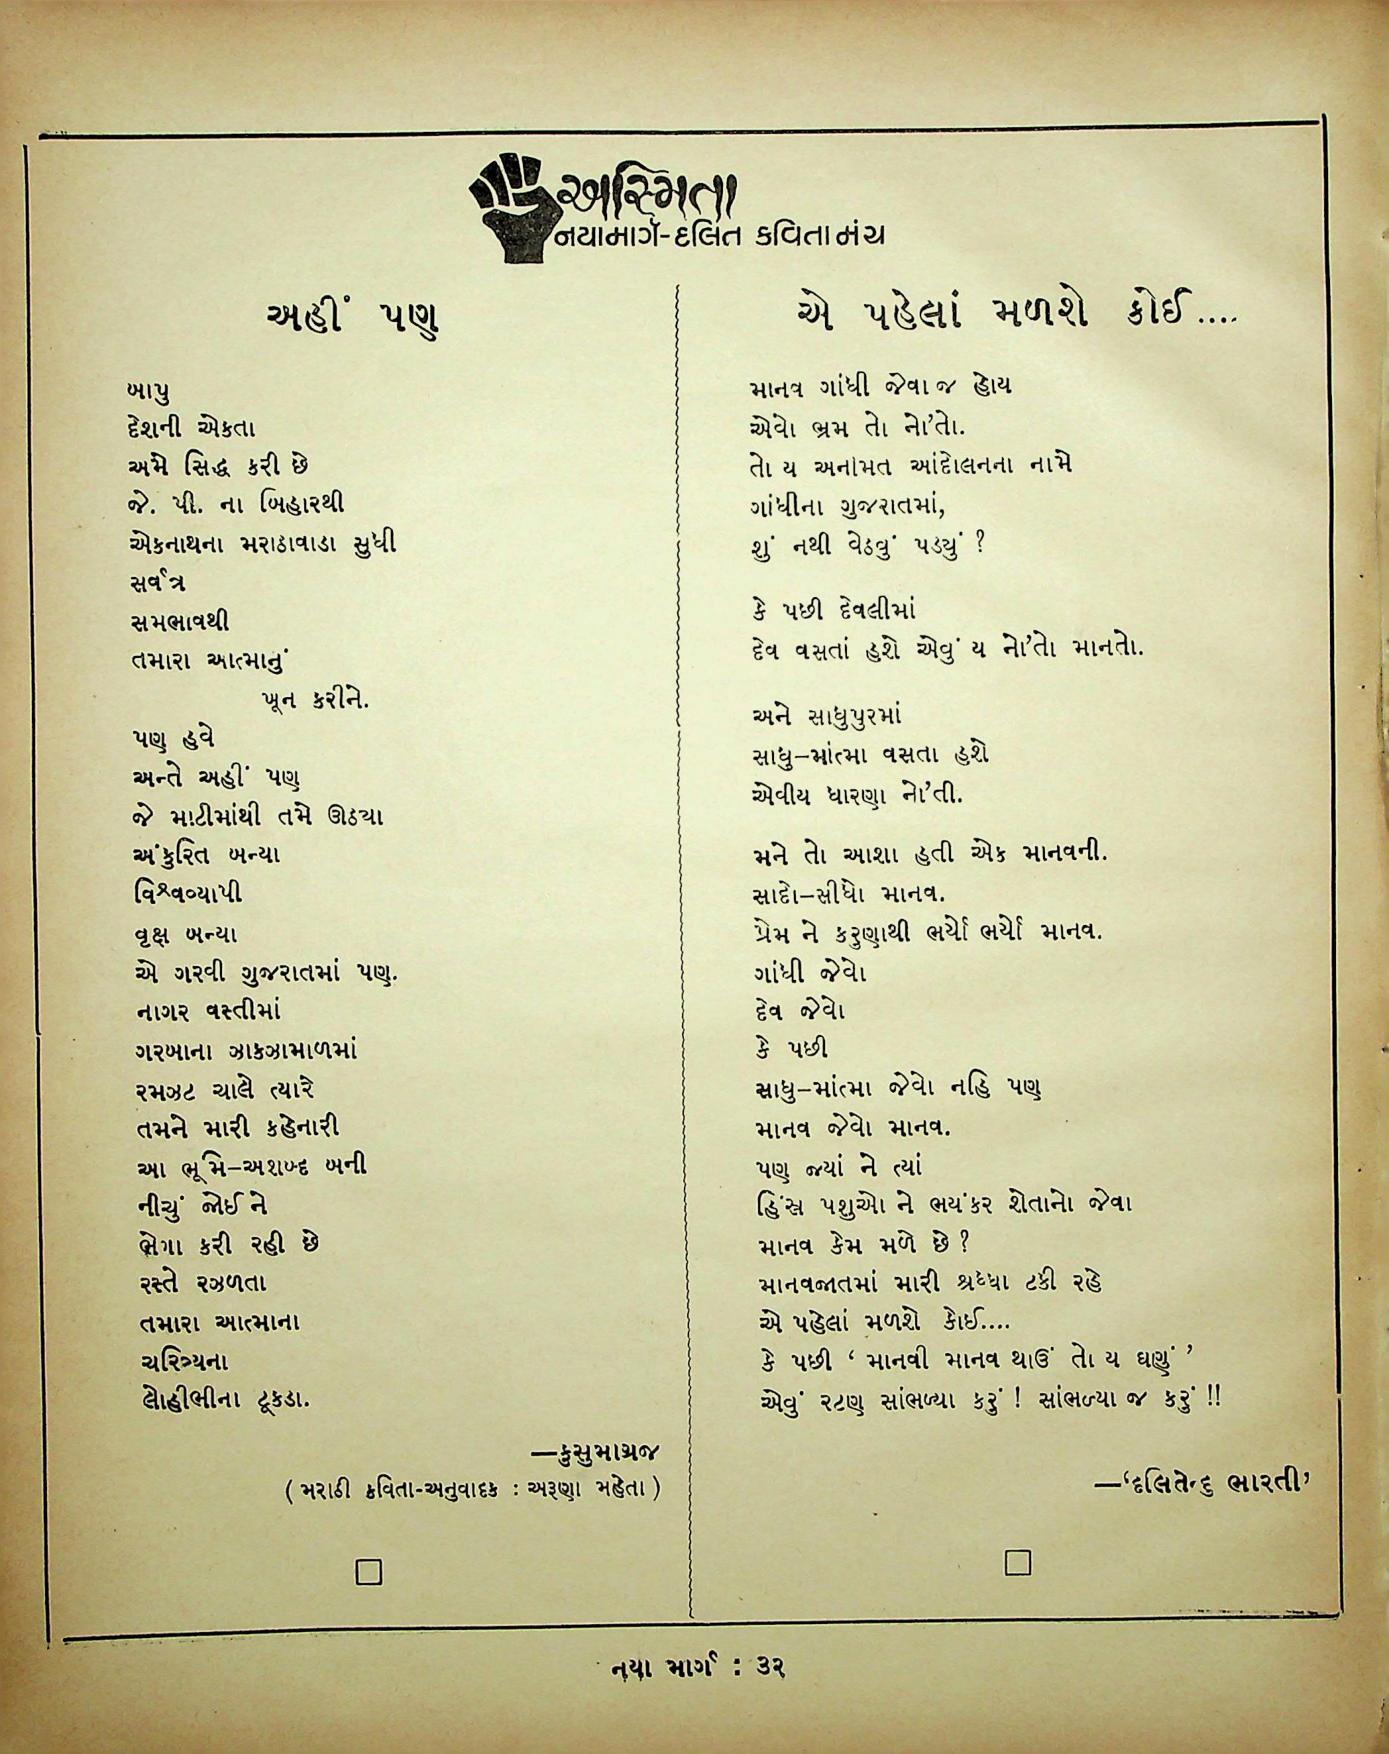 અસ્મિતા
નયામાર્ગ-દલિત કવિતા મંચ
અહીં પણ
બાપુ
દેશની એકતા
અમે સિદ્ધ કરી છે
જે. પી. ના બિહારથી
એકનાથના મરાઠાવાડા સુધી
સર્વત્ર
સમભાવથી
તમારા આત્માનું
ખૂન કરીને.
પણ હવે
અન્તે અહીં પણ
જે માટીમાંથી તમે ઊઠયા
અંકુરિત બન્યા
વિશ્વવ્યાપી
વૃક્ષ બન્યા
એ ગરવી ગુજરાતમાં પણ.
નાગર વસ્તીમાં
ગરબાના ઝાકઝામાળમાં
રમઝટ ચાલે ત્યારે
તમને મારી કહેનારી
આ ભૂમિ–અશબ્દ બની
નીચું જોઈ ને
ભેગા કરી રહી છે
રસ્તે રઝળતા
તમારા આત્માના
ચરિત્ર્યના
લોહીભીના ટૂકડા.
—કુસુમાગ્રજ
( મરાઠી કવિતા-અનુવાદક : અરૂણા મહેતા )
એ પહેલાં મળશે કોઈ....
માનવ ગાંધી જેવા જ હોય
એવો ભ્રમ તો નો'તો.
તો ય અનામત આંદોલનના નામે
ગાંધીના ગુજરાતમાં,
શું નથી વેઠવું પડયું ?
કે પછી દેવલીમાં
દેવ વસતાં હશે એવું ય નો'તો માનતો.
અને સાધુપુરમાં
સાધુ–માંત્મા વસતા હશે
એવીય ધારણા નો'તી.
મને તો આશા હતી એક માનવની.
સાદો–સીધો માનવ.
પ્રેમ ને કરુણાથી ભર્યો ભર્યો માનવ.
ગાંધી જેવો
દેવ જેવો
કે પછી
સાધુ–માંત્મા જેવો નહિ પણ
માનવ જેવો માનવ.
પણ જ્યાં ને ત્યાં
હિંસ્ર પશુઓ ને ભયંકર શેતાનો જેવા
માનવ કેમ મળે છે ?
માનવજાતમાં મારી શ્રધ્ધા ટકી રહે
એ પહેલાં મળશે કોઈ....
કે પછી ‘ માનવી માનવ થાઉં તો ય ઘણું ’
એવું રટણ સાંભળ્યા કરું ! સાંભળ્યા જ કરું !!
—‘દલિતેન્દુ ભારતી’
નયા માર્ગ : ૩૨